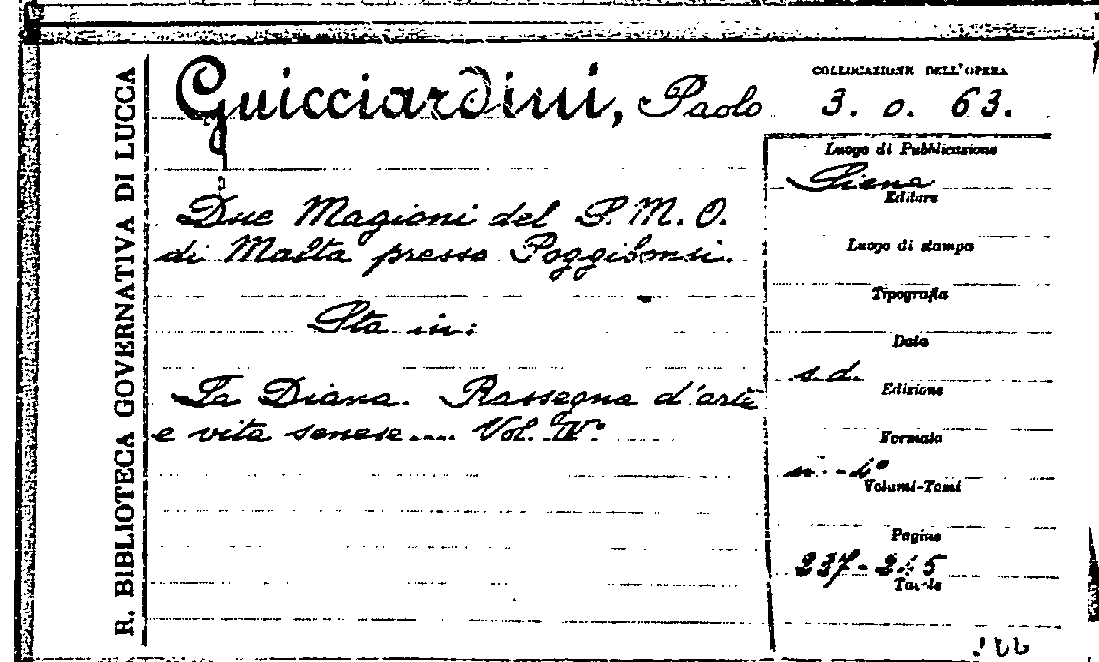 R. BIBLIOTECA GOVERNATIVA DI LUCCA
Guicciardini, Paolo
COLLOCAZIONE DELL'OPERA
3. o. 63.
Due Magioni del S. M. O.
di Malta presso Poggibonsi.
Sta in:
La Diana. Rassegna d'arte
e vita senese.... Vol. IV°
Luogo di Pubblicazione
Siena
Editore
Luogo di stampa
Tipografia
Data
s. d.
Edizione
Formato
in-4°
Volumi-Tomi
Pagine
237-245
Tavole